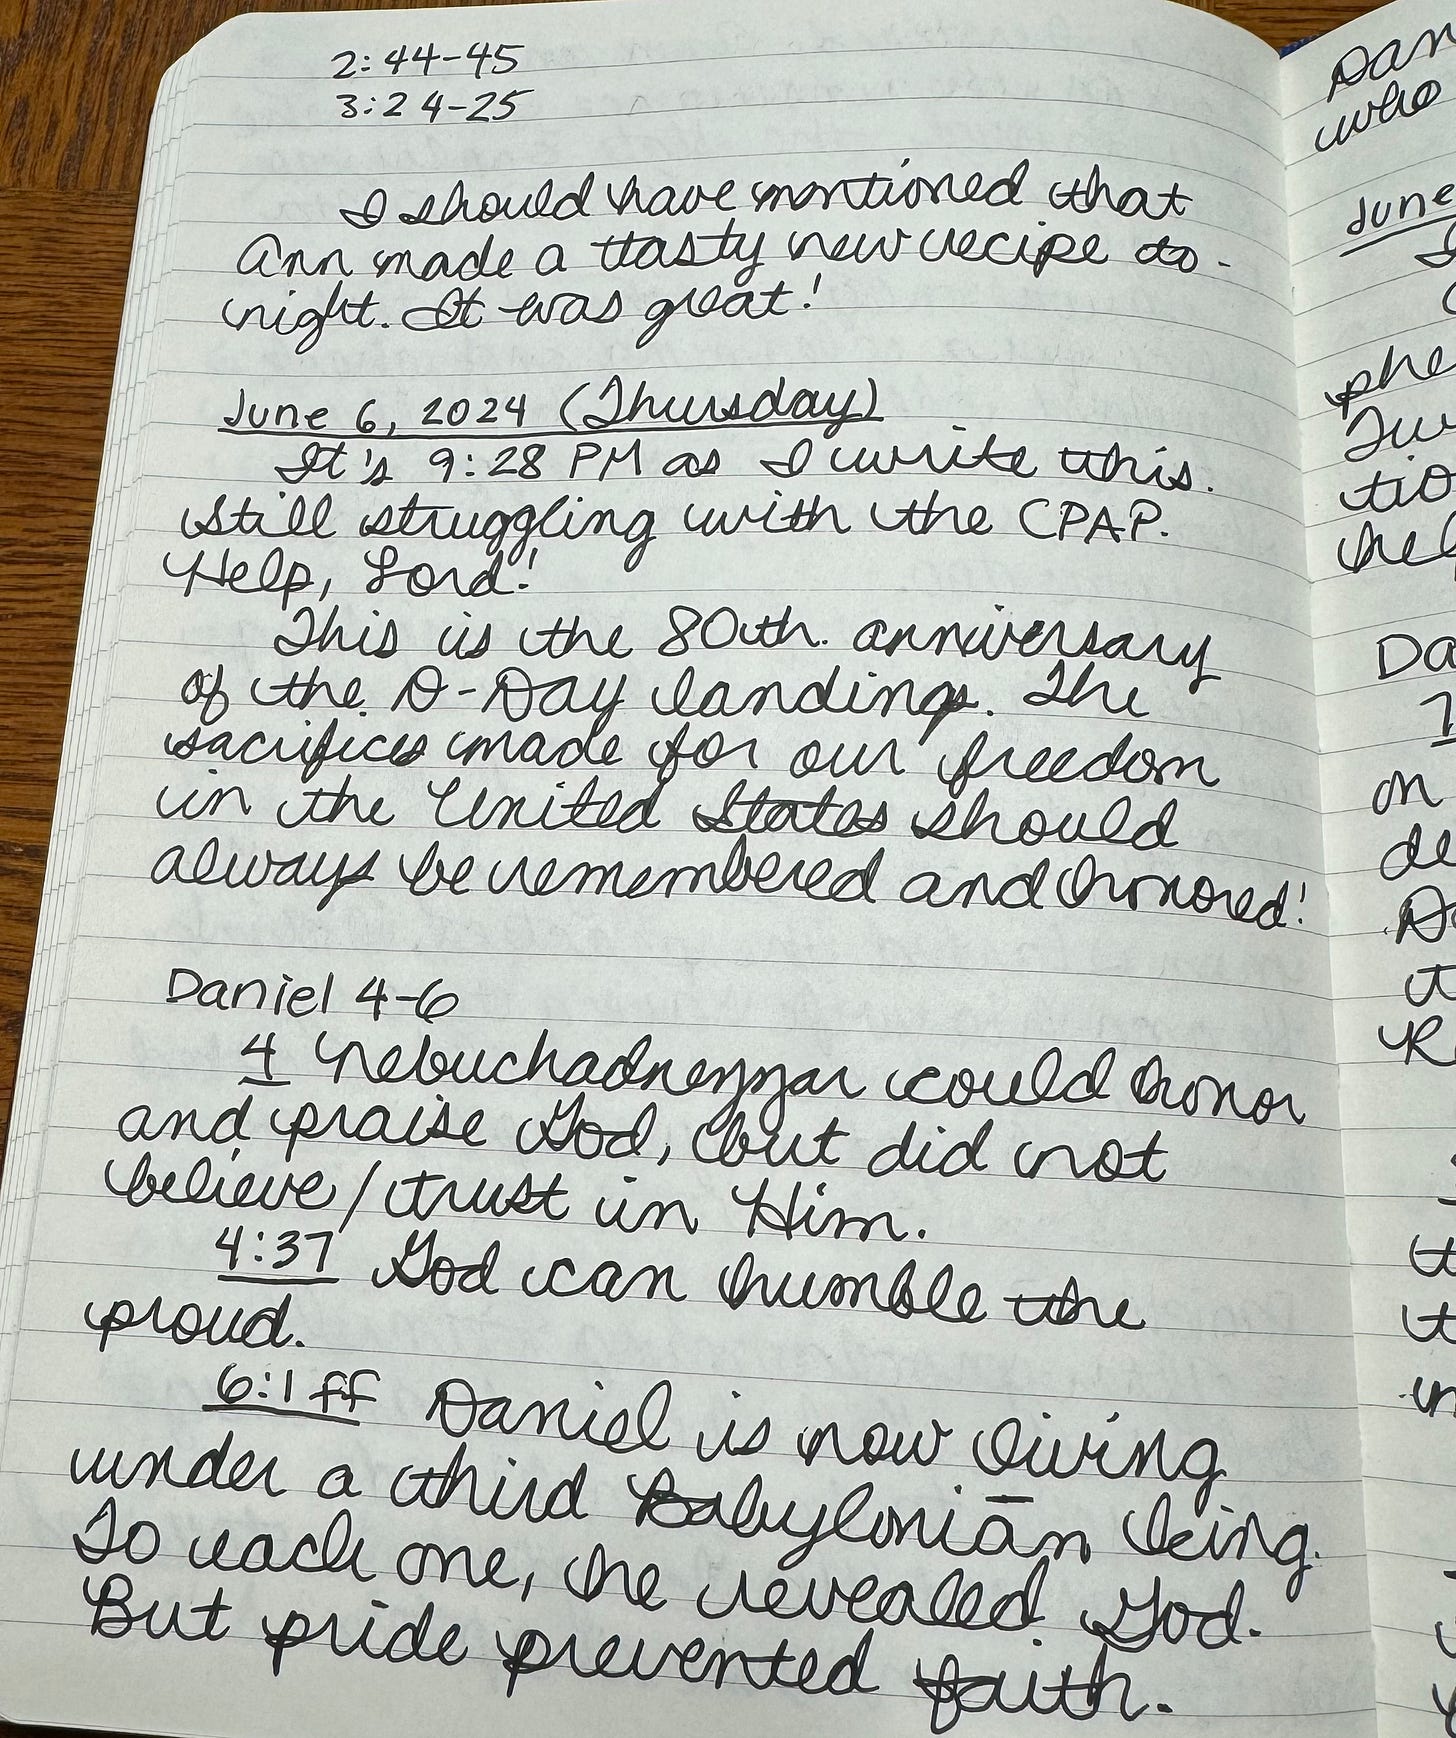 2:44-45
3:24-25
I should have mentioned that
Ann made a tasty new recipe to-
night. It was great!
June 6, 2024 (Thursday)
It's 9:28 PM as I write this.
Still struggling with the CPAP.
Help, Lord!
This is the 80th. anniversary
of the D-Day landings. The
sacrifices made for our freedom
in the United States should
always be remembered and honored!
Daniel 4-6
4 Nebuchadnezzar could honor
and praise God, but did not
believe/trust in Him.
4:37 God can humble the
proud.
6:1ff Daniel is now living
under a third Babylonian king.
To each one, he revealed God.
But pride prevented faith.
Dan
who
June
phe
tio
hel
Da
on
de